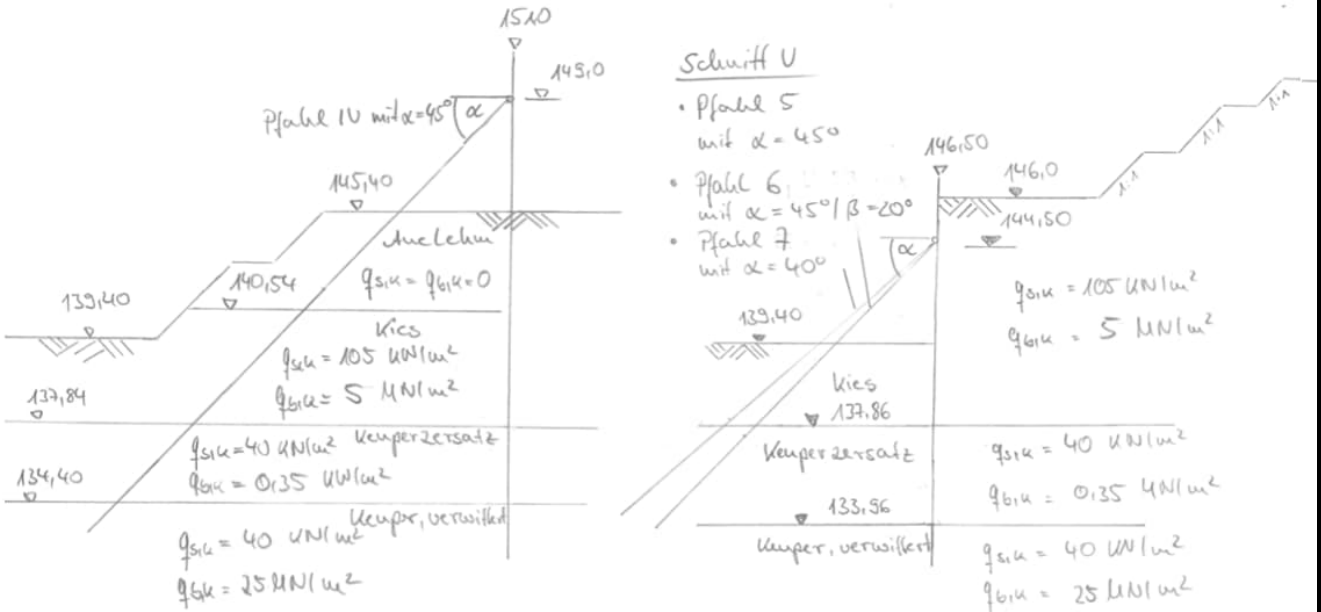 151,0
149,0
Pfahl IV mit α=45°
α
145,40
Auelehm
qs,k = qb,k = 0
140,54
139,40
Kies
qs,k = 105 kN/m²
qb,k = 5 MN/m²
137,84
Keuperzersatz
qs,k = 40 kN/m²
qb,k = 0,35 kN/m²
134,40
Keuper, verwittert
qs,k = 40 kN/m²
qb,k = 25 MN/m²
Schnitt V
• Pfahl 5
mit α = 45°
• Pfahl 6
mit α = 45° / β = 20°
• Pfahl 7
mit α = 40°
146,50
146,0
144,50
1:1
1:1
1:1
α
qs,k = 105 kN/m²
qb,k = 5 MN/m²
139,40
Kies
137,86
Keuperzersatz
qs,k = 40 kN/m²
qb,k = 0,35 MN/m²
133,96
Keuper, verwittert
qs,k = 40 kN/m²
qb,k = 25 MN/m²